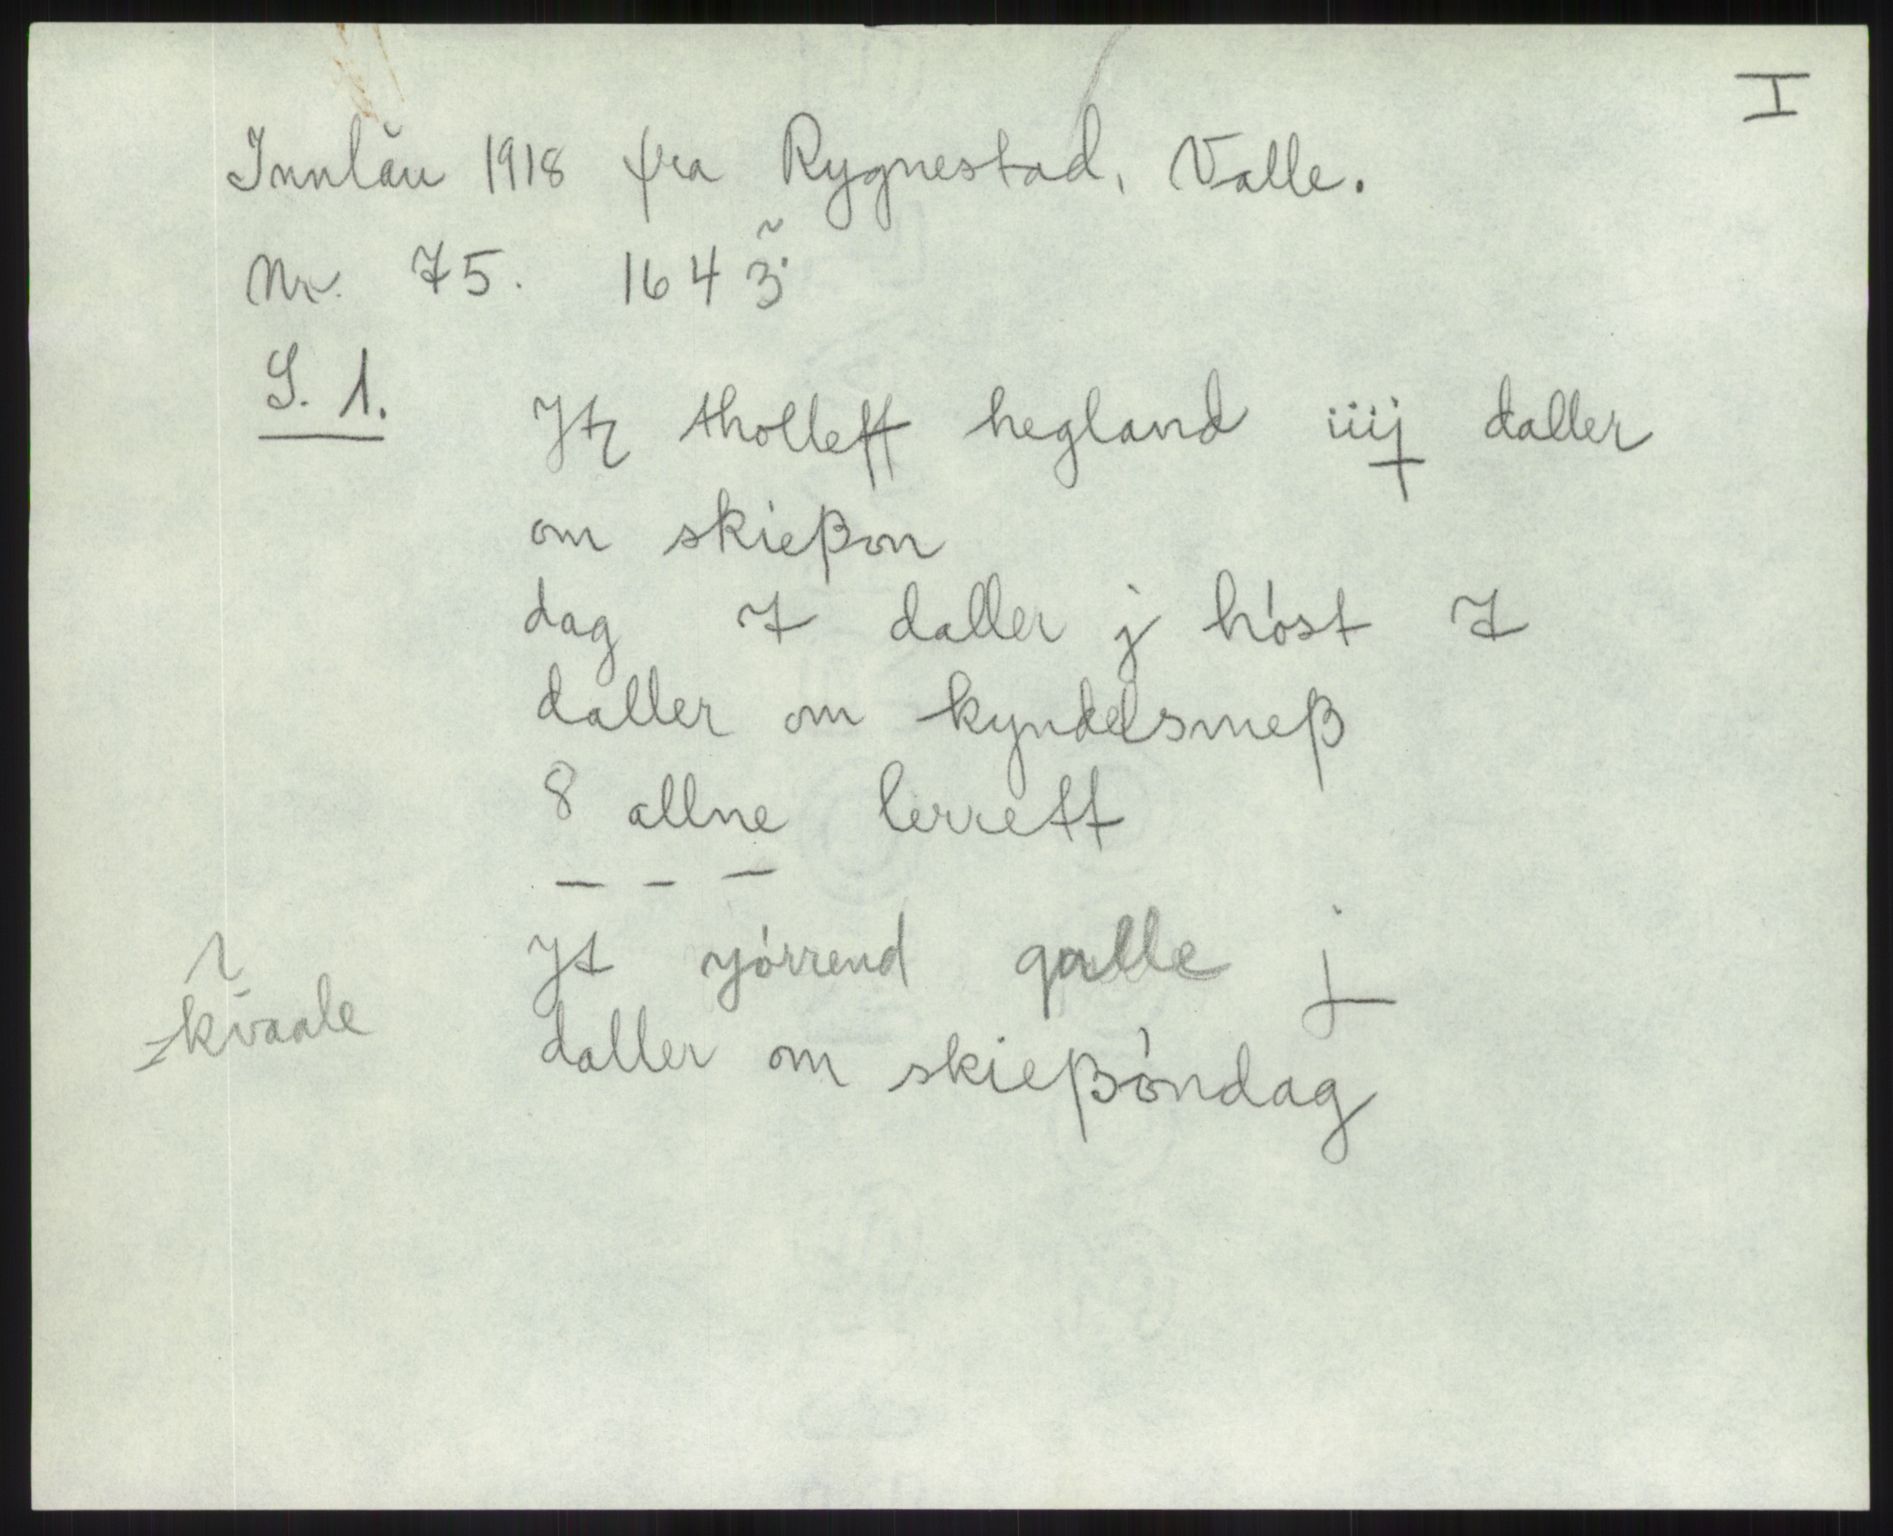 I
Innlån 1918 fra Rygnestad, Valle.
Nr. 75. 1643
S. 1.
Jtz tholleff hegland iiij daller
om skießon
dag 7 daller j høst 7
daller om kyndelsmeß
8 allne lerrett
– – –
Jt yórrend qvalle j
kvaale
daller om skießóndag